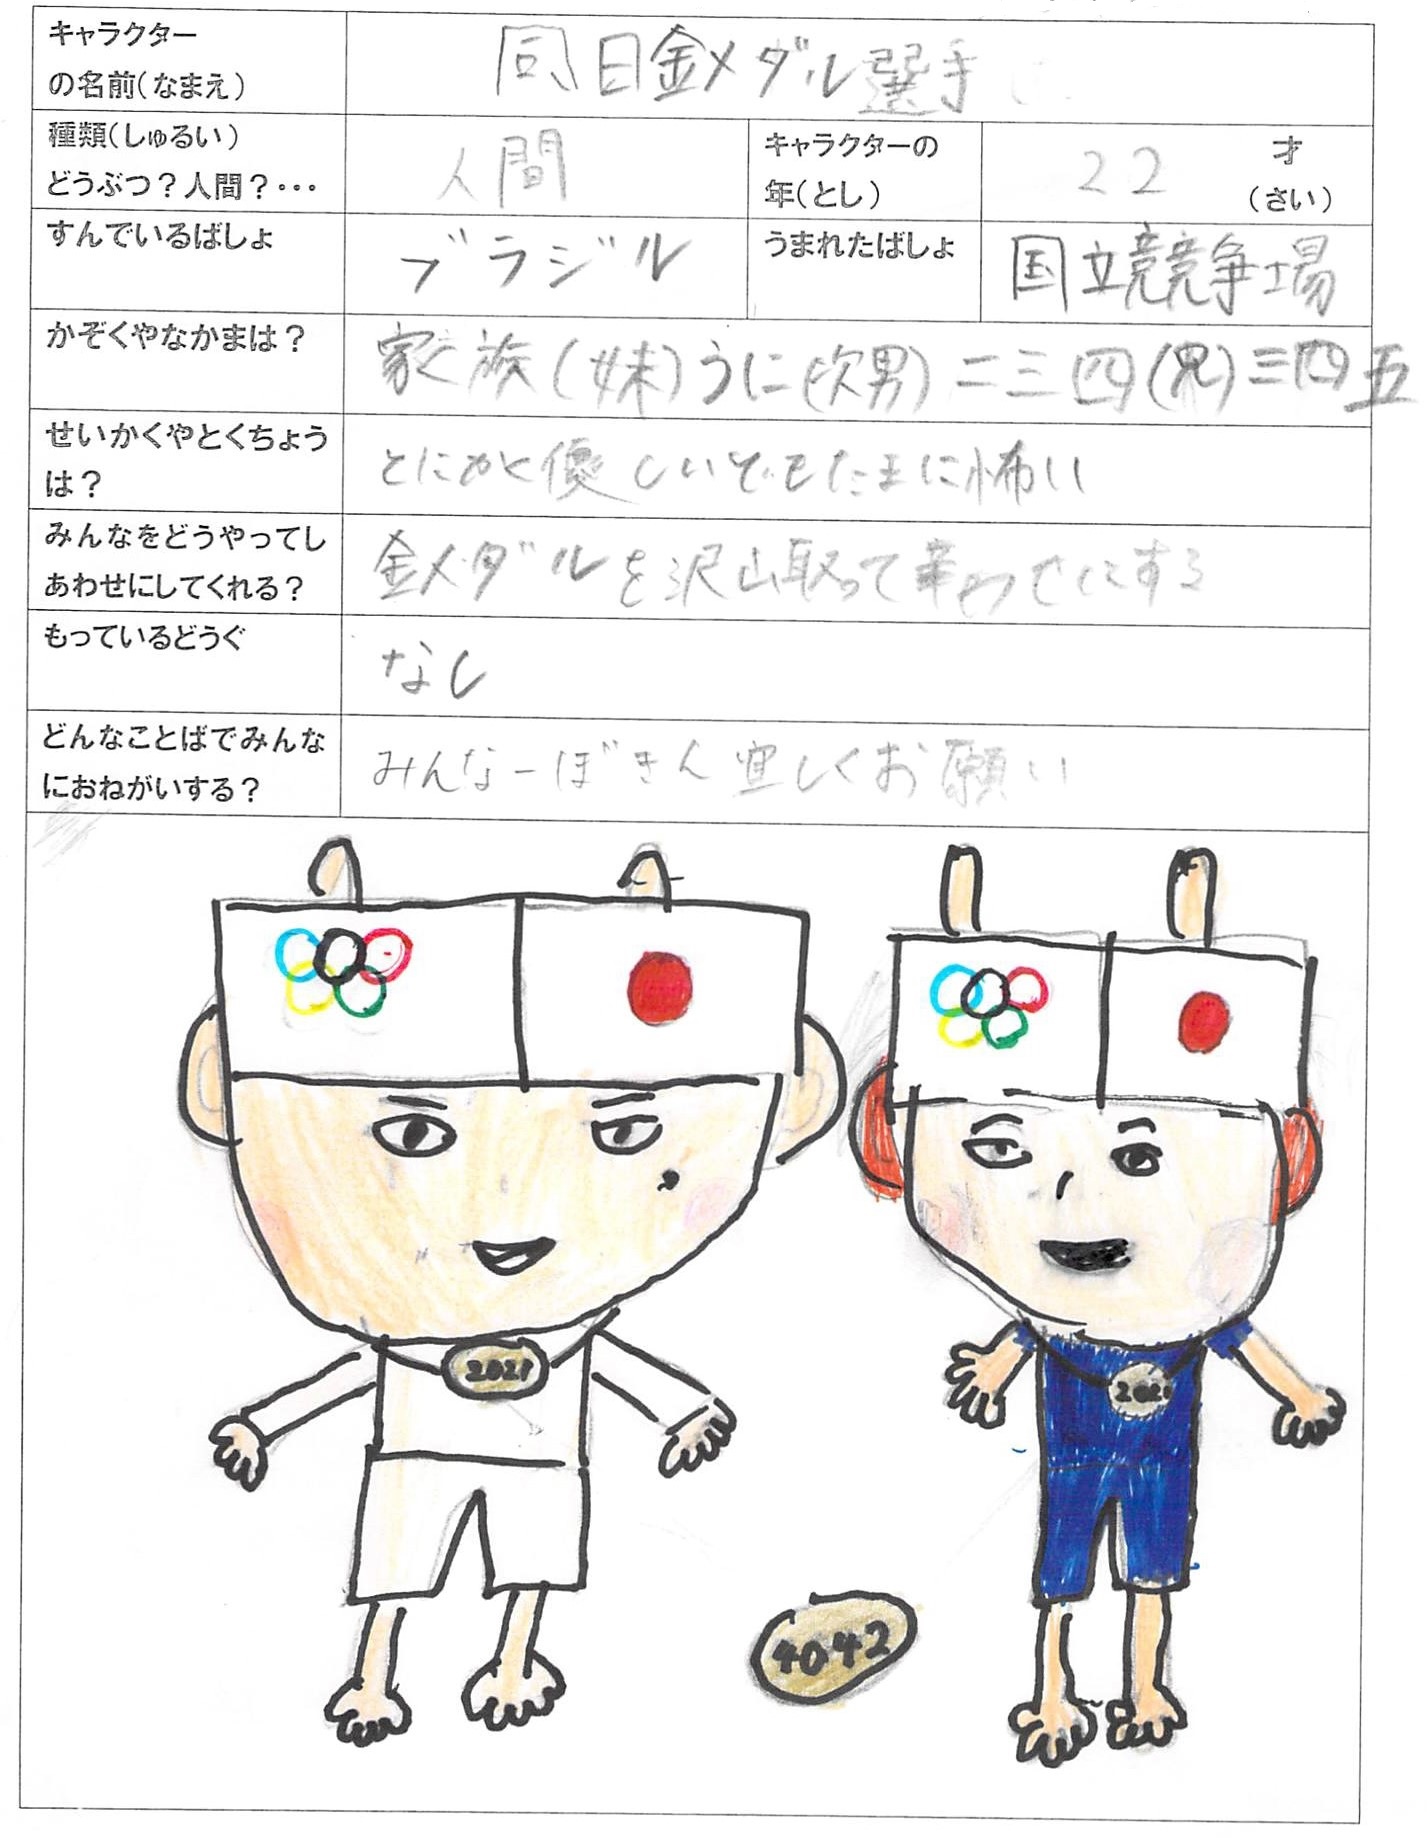 キャラクター
の名前(なまえ)
同日金メダル選手
種類(しゅるい)
どうぶつ?人間?・・・
人間
キャラクターの
年(とし)
22
才
(さい)
すんでいるばしょ
ブラジル
うまれたばしょ
国立競争場
かぞくやなかまは?
家族(妹)うに(次男)二三四(兄)三四五
せいかくやとくちょう
は?
とにかく優しいでもたまに怖い
みんなをどうやってし
あわせにしてくれる?
金メダルを沢山取って幸わせにする
もっているどうぐ
なし
どんなことばでみんな
におねがいする?
みんなーぼきん宜しくお願い
2021
2021
4042